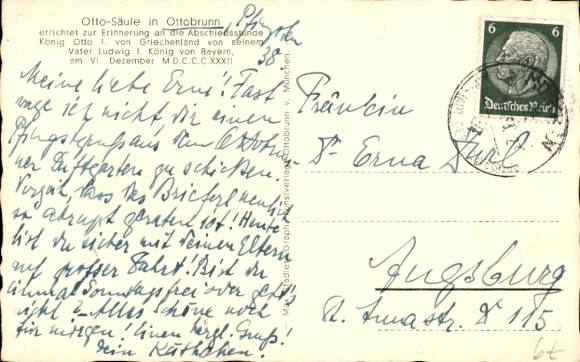 Otto-Säule in Ottobrunn
errichtet zur Erinnerung an die Abschiedsstunde
König Otto I. von Griechenland von seinem
Vater Ludwig I. König von Bayern,
am VI. Dezember M.D.C.C.C.XXXII
Pfingsten
38.
Meine liebe Erni! Fast
wage ich nicht dir einen
Pfingstgruß aus dem Ottobrun
ner Duftgarten zu schicken.
Verzeih, dass das Brieferl neulich
so abrupt geraten ist! Heute
bist du sicher mit deinen Eltern
auf großer Fahrt! Bist du
einmal Sonntags frei oder geht's
nicht? Alles Schöne noch
für morgen! Einen herzl. Gruß!
Dein Käthchen.
Graph. Kunstverlag, Ottobrunn v. München.
6 6
Deutsches Reich
Fräulein
Dr. Erna
Augsburg
115
6t